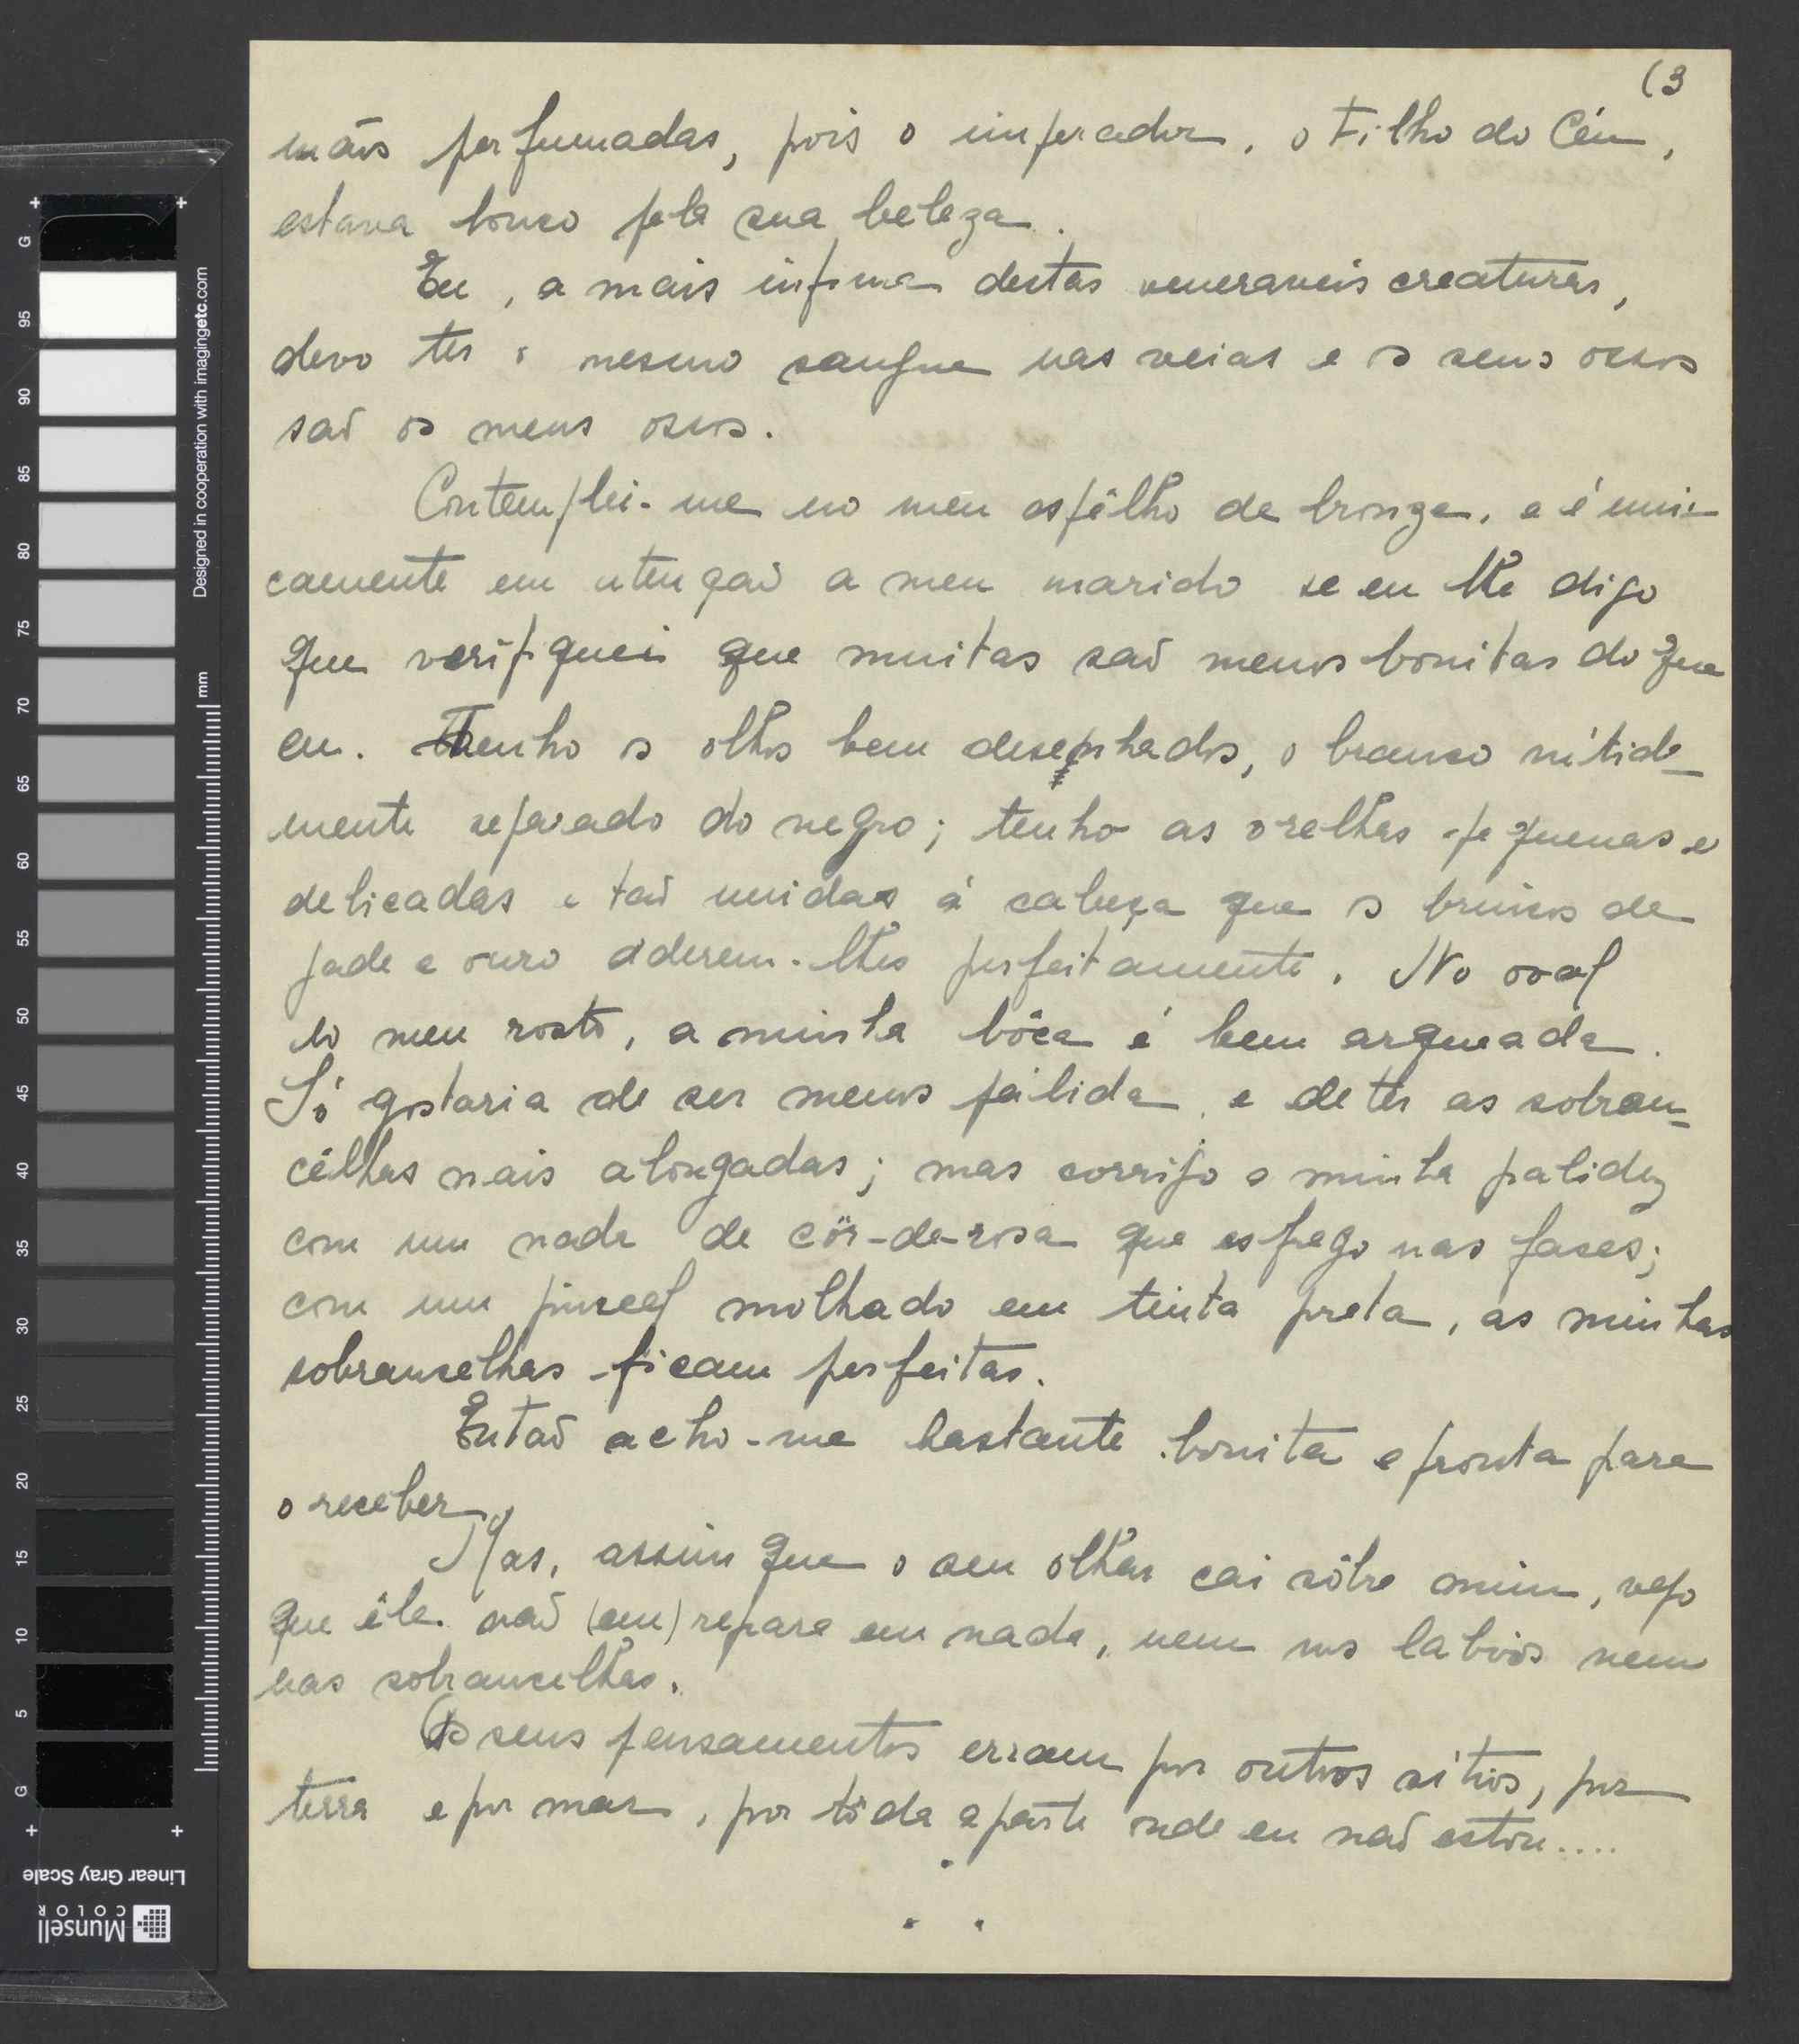 (3
mãos perfumadas, pois o imperador, o Filho do Céu,
estava louco pela sua beleza.
Eu, a mais infima destas veneraveis creaturas,
devo ter o mesmo sangue nas veias e os seus ossos
saõ os meus ossos.
Contemplei-me no meu espêlho de bronze, e é uni-
camente em atençaõ a meu marido se eu lhe digo
que verifiquei que muitas saõ menos bonitas do que
eu. Tenho os olhos bem desenhados, o branco nítida-
mente separado do negro; tenho as orelhas pequenas e
delicadas e taõ unidas á cabeça que os brincos de
jade e ouro aderem-lhes perfeitamente. No oval
do meu rosto, a minha bôca é bem arqueada.
Só gostaria de ser menos pálida, e de ter as sobran-
cêlhas mais alongadas; mas corrijo a minha palidez
com um nada de côr-de-rosa que esfrego nas faces;
com um pincel molhado em tinta preta, as minhas
sobrancelhas ficam perfeitas.
Entaõ acho-me bastante bonita e pronta para
o receber.
Mas, assim que o seu olhar cai sôbre mim, vejo
que êle naõ (em) repara em nada, nem nos labios nem
nas sobrancelhas.
Os seus pensamentos erram por outros sitios, por
terra e por mar, por tôda a parte onde eu naõ estou....
G
95
90
85
80
75
70
65
60
55
50
45
40
35
30
25
20
15
10
5
G
Designed in cooperation with imagingetc.com
mm
Linear Gray Scale
Munsell
COLOR